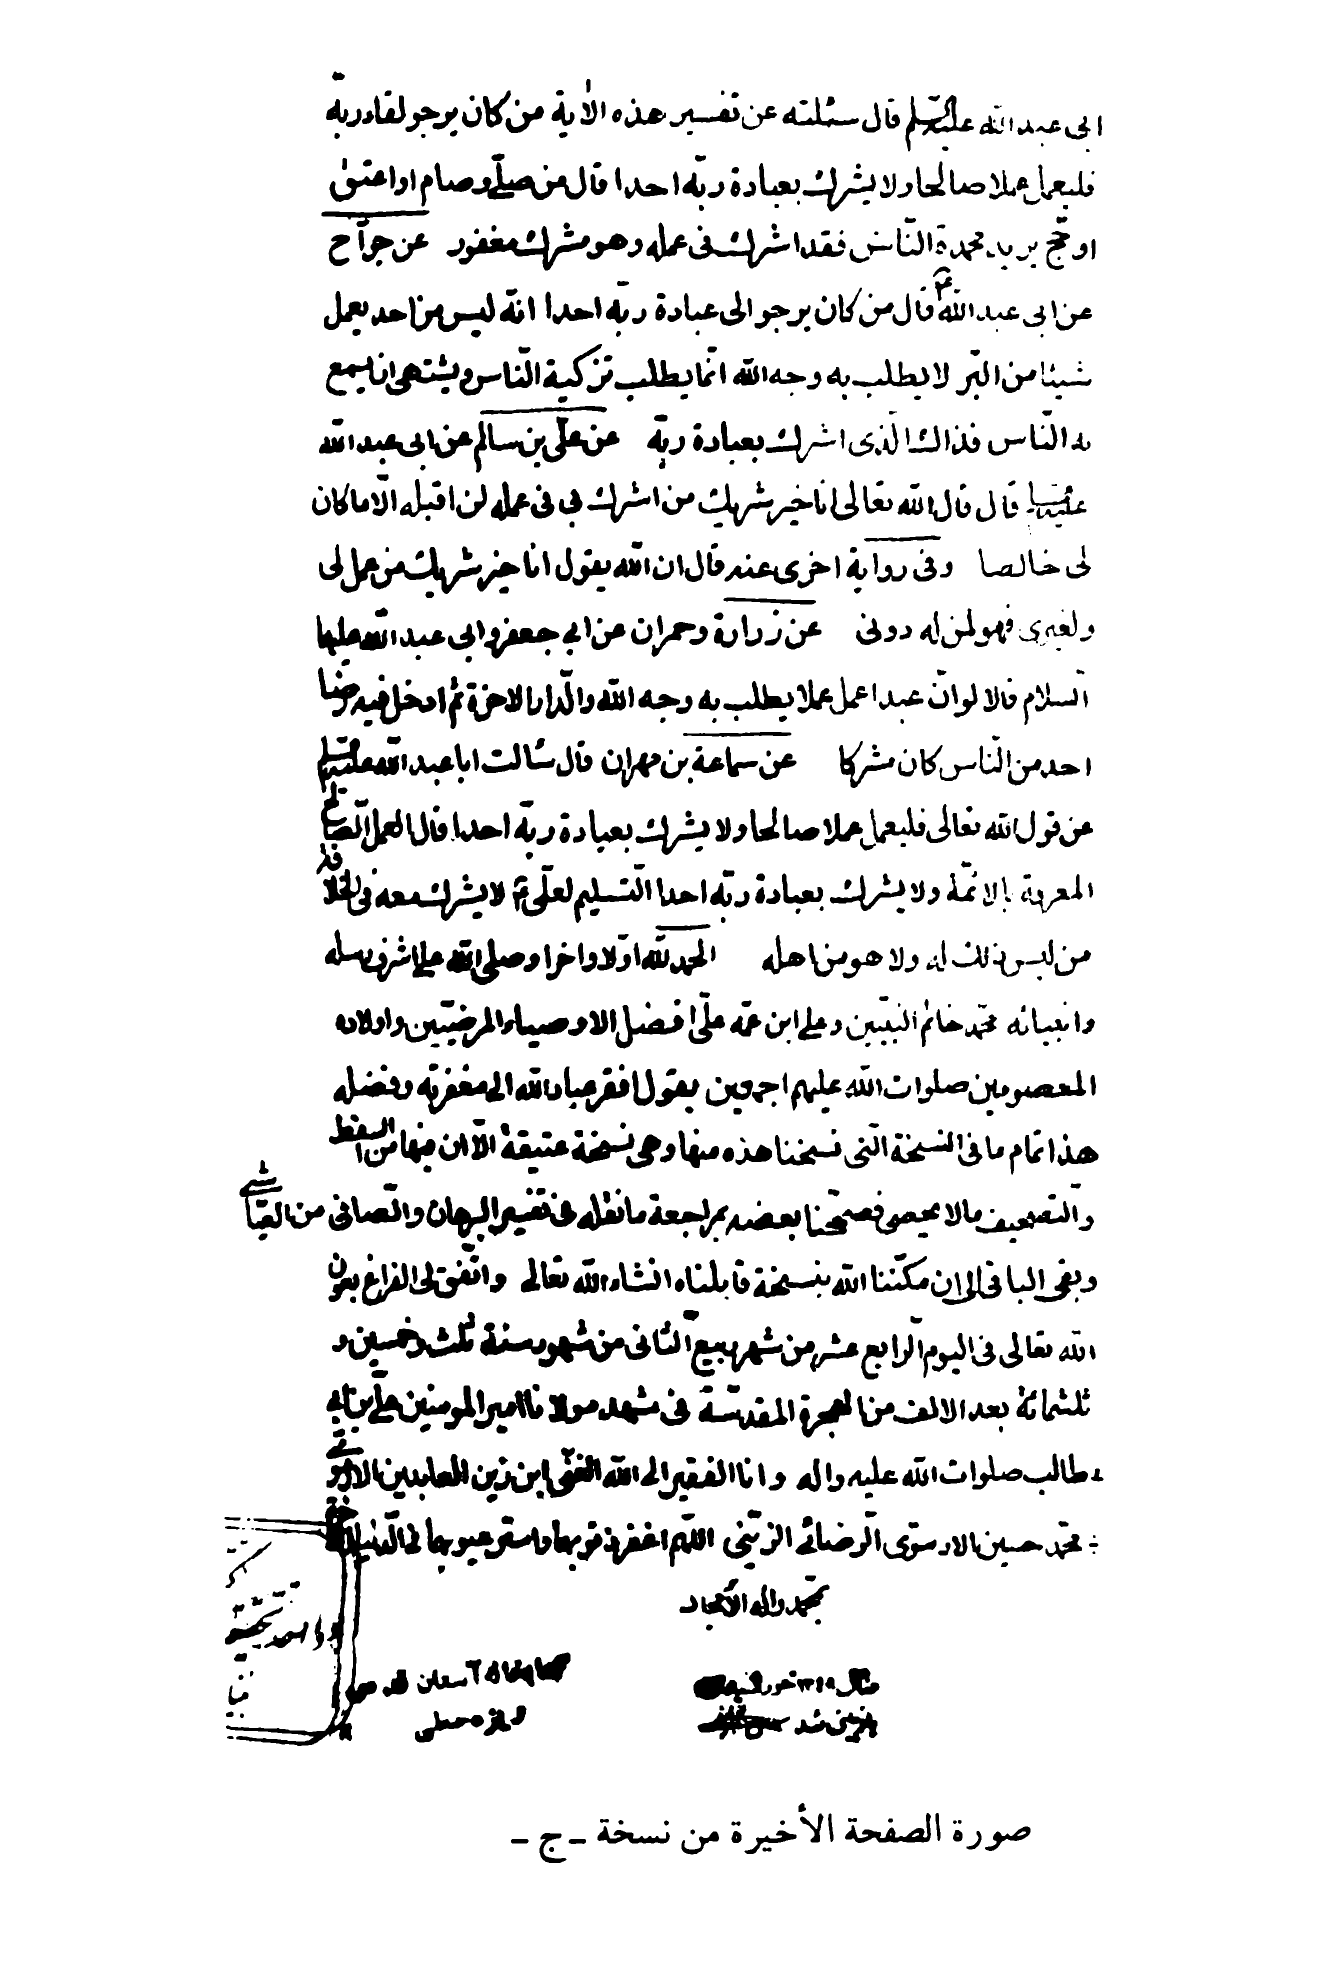 ابى عبد الله عليه السلم قال سئلته عن تفسير هذه الاية من كان يرجو لقاء ربه
فليعمل عملا صالحا ولا يشرك بعبادة ربّه احدا قال من صلّى وصام او اعتق
او حجّ يريد محمدة النّاس فقد اشرك فى عمله وهو مشرك مغفور عن جرّاح
عن ابى عبد اللهؑ قال من كان يرجو الى عبادة ربّه احدا انّه ليس من احد يعمل
شيئا من البّر لا يطلب به وجه الله انّما يطلب تزكية النّاس ويشتهى ان يسمع
به النّاس فذاك الّذى اشرك بعبادة ربّه عن علّى بن سالم عن ابى عبد الله
عليه قال قال الله تعالى انا خير شريك من اشرك بى فى عمله لن اقبله الّا ما كان
لى خالصا وفى رواية اخرى عنه قال ان الله يقول انا خير شريك من عمل لى
ولغيرى فهو لمن له دونى عن زرارة وحمران عن ابى جعفر وابى عبد الله عليهما
السّلام قالا لو انّ عبدا عمل عملا يطلب به وجه الله والّدار الاخرة ثم ادخل فيه رضا
احد من النّاس كان مشركا عن سماعة بن مهران قال سئالت ابا عبد الله عليه السلم
عن قول الله تعالى فليعمل عملا صالحا ولا يشرك بعبادة ربّه احدا قال العمل الصّالح
المعرفة بالائمّة ولا يشرك بعبادة ربّه احدا التّسليم لعلّىؑ لا يشرك معه فى الخلافة
من ليس ذلك له ولا هو من اهله الحمد لله اوّلا واخرا وصلى الله على اشرف رسله
وانبيائه محمّد خاتم النبيّين وعلى ابن عمّه علّى افضل الاوصياء المرضيّين واولاده
المعصومين صلوات الله عليهم اجمعين يقول افقر عباد الله الى مغفرته وفضله
هذا تمام ما فى النسخة الّتى نسخنا هذه منها وهى نسخة عتيقة الّا ان فيها من السقط
والتّصحيف ما لا يحصى فصحّحنا بعضه بمراجعة ما نقله فى تفسير البرهان والصّافى من العيّاشى
وبقى الباقى الى ان مكّننا الله بنسخة قابلناه انشاء الله تعالى واتّفق لى الفراغ بعون
الله تعالى فى اليوم الّرابع عشر من شهر ربيع الّثانى من شهور سنة ثلث وخمسين و
ثلثمائة بعد الالف من الهجرة المقدّسة فى مشهد مولانا امير المومنين علّى بن ابى
طالب صلوات الله عليه واله وانا الفقير الى الله الغنّى ابن زين العابدين
محمّد حسين الّرضائى اللّهم اغفر ذنوبهما واستر عيوبهما فى الّدنيا والاخرة
بمحمّد واله الأمجاد
صورة الصفحة الأخيرة من نسخة ـ ج ـ